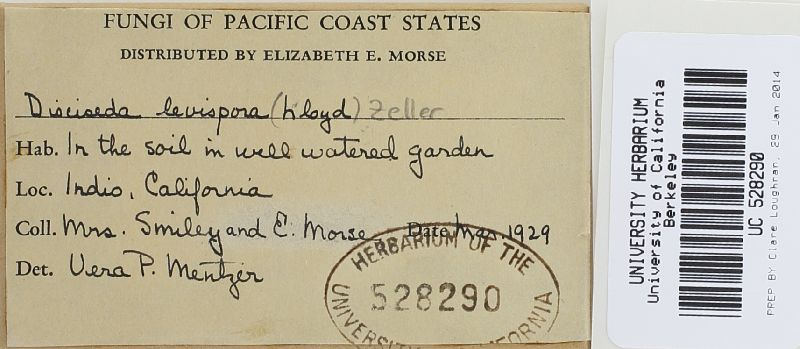 FUNGI OF PACIFIC COAST STATES
DISTRIBUTED BY ELIZABETH E. MORSE
Disciseda levispora (Lloyd) Zeller
Hab. In the soil in well watered garden
Loc. Indio, California
Coll. Mrs. Smiley and E. Morse Date Mar 1929
Det. Vera P. Mentzer
HERBARIUM OF THE
528290
UNIVERSITY CALIFORNIA
UNIVERSITY HERBARIUM
University of California
Berkeley
UC 528290
PREP BY Clare Loughran, 29 Jan 2014